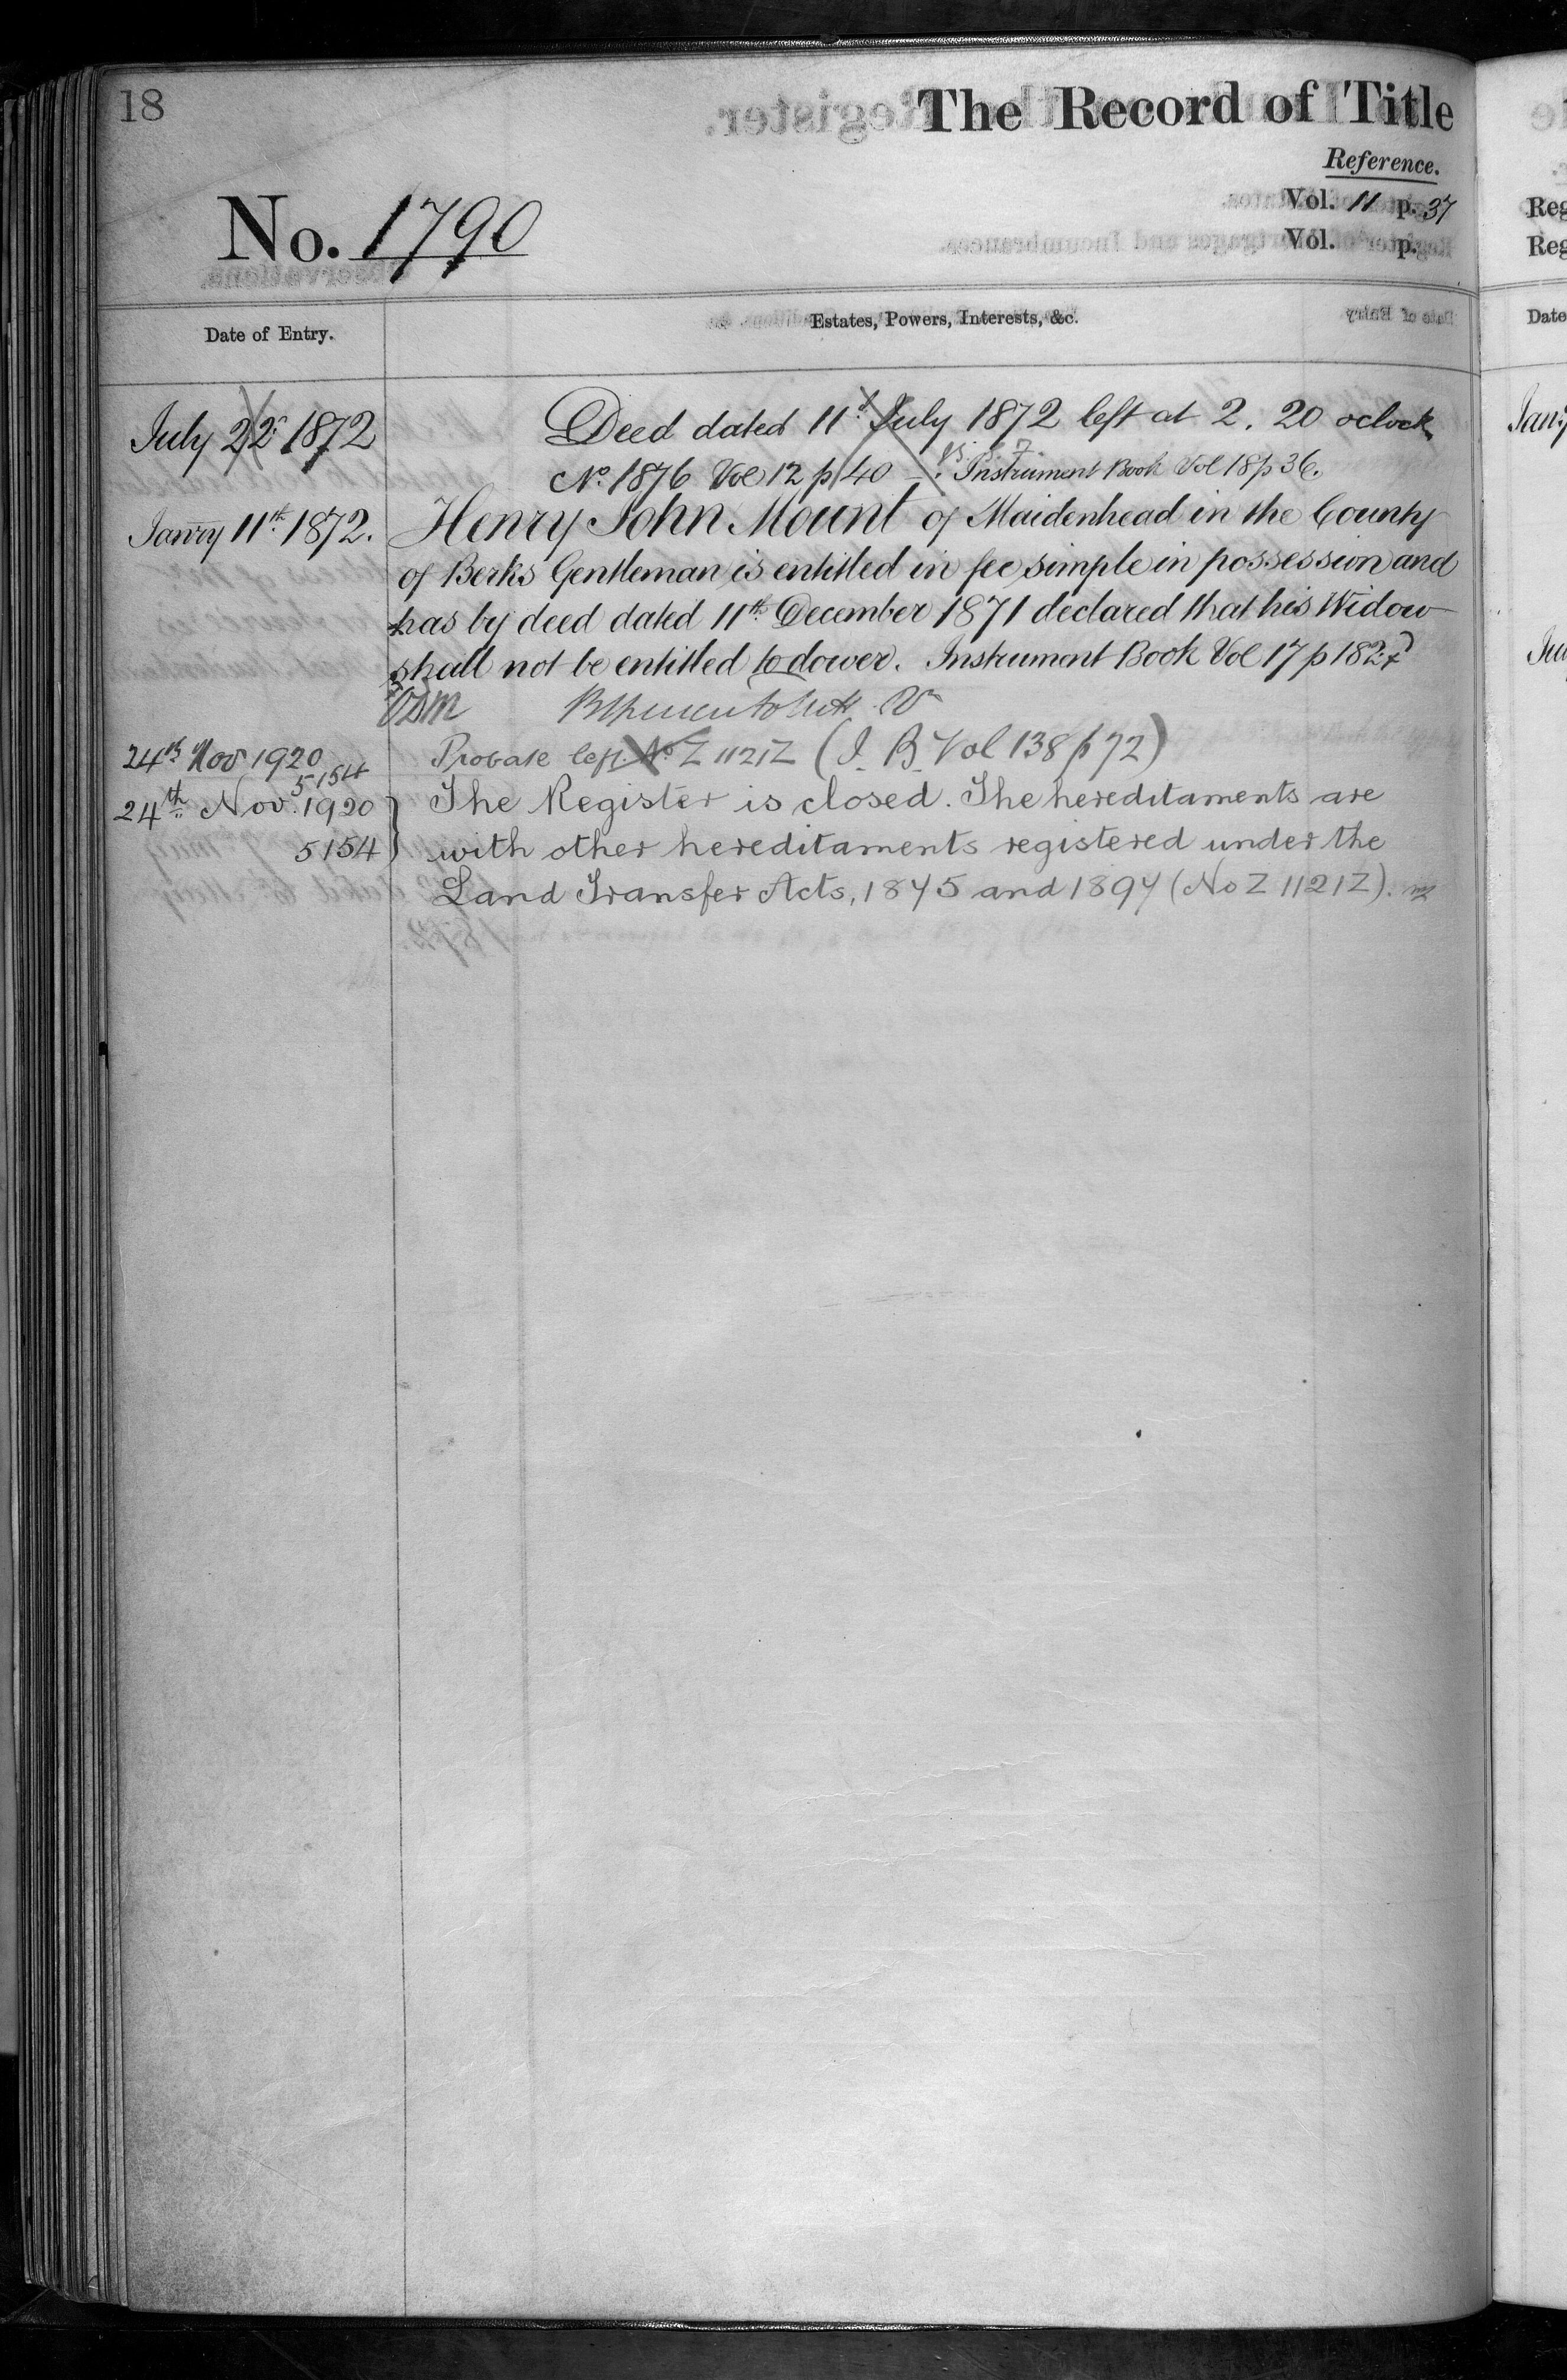 18
The Record of Title
Reference.
Vol. 11 p. 37
No. 1790
Vol. p.
Date of Entry. Estates, Powers, Interests, &c.
July 22 1872 Deed dated 11th July 1872 left at 2. 20 oclock
No. 1876 Vol 12 p 40 Instrument Book Vol 18 p 36.
Janry 11th 1872. Henry John Mount of Maidenhead in the County
of Berks Gentleman is entitled in fee simple in possession and
has by deed dated 11th December 1871 declared that his Widow
shall not be entitled to dower. Instrument Book Vol 17 p 182
24th Nov 1920 Probate left No Z 1121Z (I. B. Vol 138 p 72)
5154
24th Nov. 1920 The Register is closed. The hereditaments are
5154 with other hereditaments registered under the
Land Transfer Acts, 1875 and 1897 (No Z 1121Z).
Reg
Reg
Date